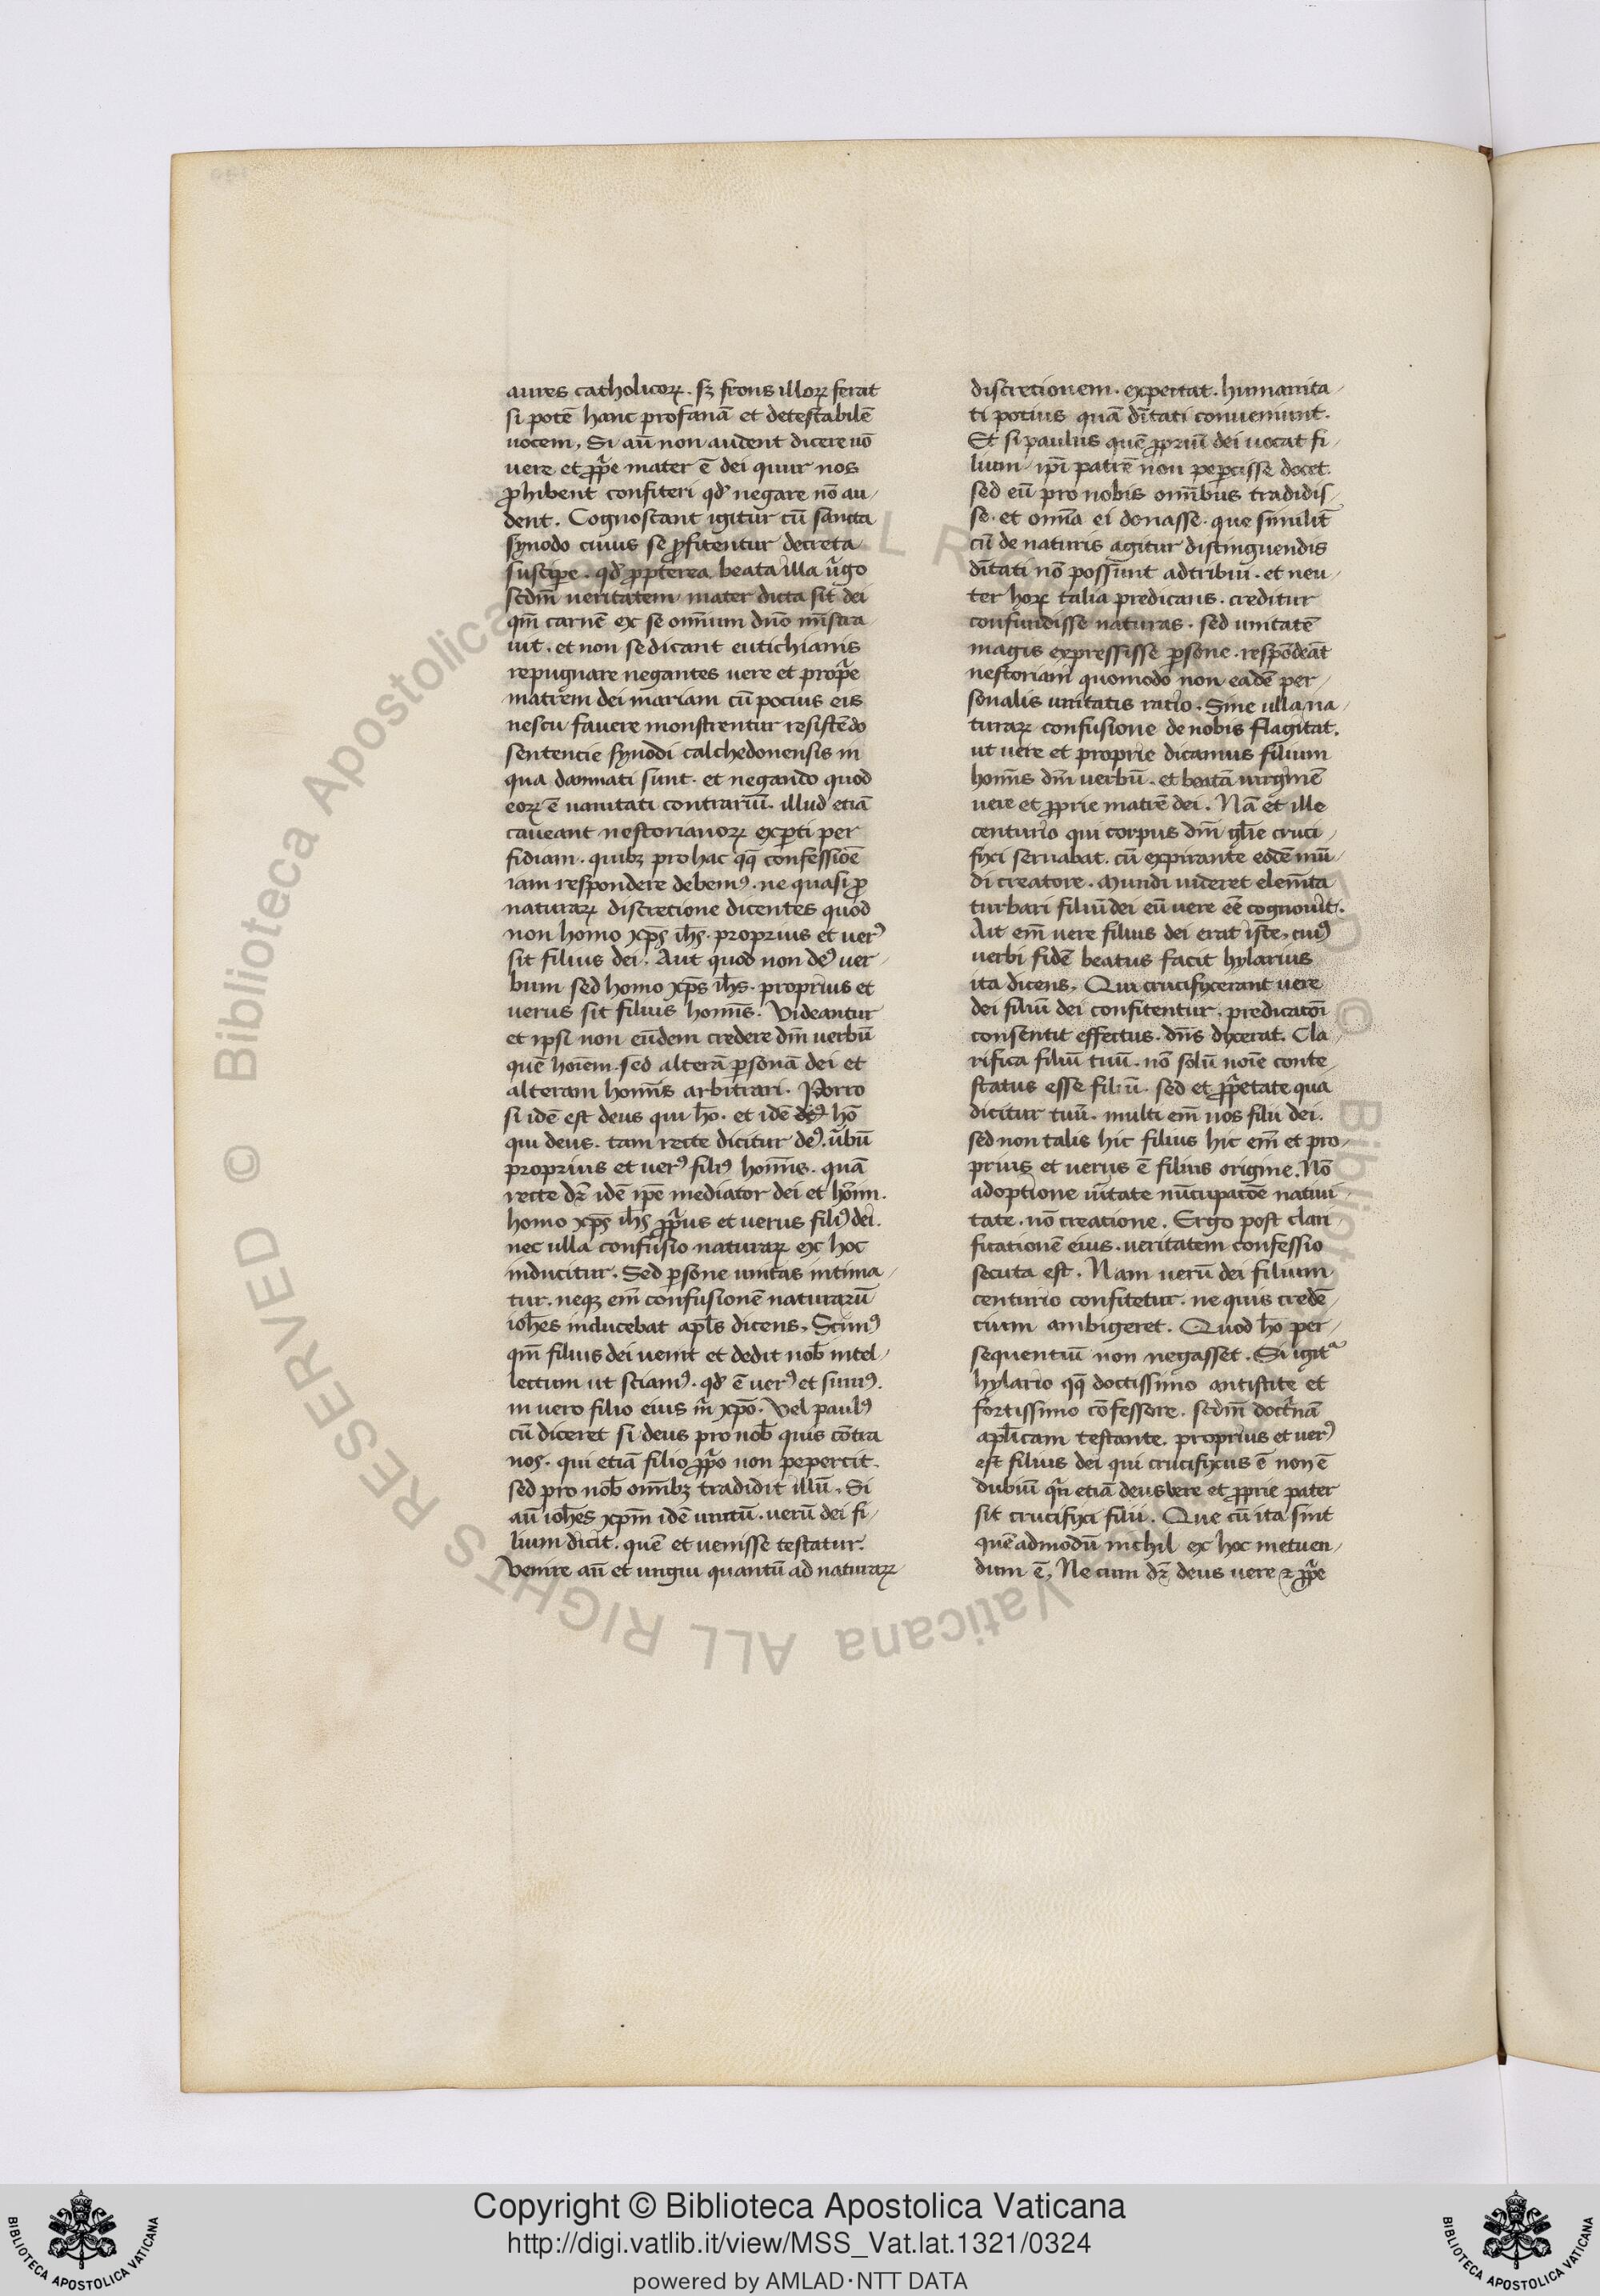 aures catholicoꝝ. sꝫ frons illoꝝ ferat
si potē hanc profanā et detestabilē
uocem, Si aū non audent dicere uō
uere et ꝓpͥe mater ē dei quur nos
ꝓhibent confiteri qđ negare nō au-
dent. Cognoscant igitur cū sancta
synodo cuius se ꝓfitentur decreta
suscipe. qđ ꝓpterea beata illa uͥgo
scdm̄ ueritatem mater dicta sit dei
qm̄ carnē ex se omnium dn̄o mīstra-
uit. et non se dicant eutichianis
repugnare negantes uere et propͥe
matrem dei mariam cū pocius eis
nescii fauere monstrentur resistēdo
sentencie synodi calchedonensis in
qua damnati sunt. et negando quod
eoꝝ ē uanitati contrariū. illud etiā
caueant nestorianoꝝ exꝑti per
fidiam. quibꝫ pro hac qꝗ confessiōe
iam respondere debemꝰ. ne quasi ꝓ
naturaꝝ discretione dicentes quod
non homo xp̄s ih̄s. proprius et uerꝰ
sit filius dei. Aut quod non deꝰ uer-
bum sed homo xp̄s ih̄s. proprius et
uerus sit filius homīs. Videantur
et ipsi non eūdem credere dm̄ uerbū
quē hoīem. sed alterā ꝑsonā dei et
alteram homīs arbitrari. Porro
si idē est deus qui hō. et idē hō
qui deus. tam recte dicitur deꝰ. uͥbū
proprius et uerꝰ filiꝰ homīs. quā
recte dr̄ idē ipē mediator dei et hoīm.
homo xp̄s ih̄s ꝓpͥus et uerus filiꝰ dei.
nec ulla confusio naturaꝝ ex hoc
inducitur. Sed ꝑsone unitas intima-
tur. neqꝫ em̄ confusionē naturarū
ioh̄es inducebat apl̄s dicens, Scimꝰ
qm̄ filius dei uenit et dedit nob̄ intel-
lectum ut sciamꝰ. qđ ē uerꝰ et simꝰ.
in uero filio eius iħu xp̄o. Vel paulꝰ
cū diceret si deus pro nob̄ quis cōtra
nos. qui etiā filio ꝓpͥo non pepercit.
sed pro nob̄ omībꝫ tradidit illū, Si
aū ioh̄es xp̄m idē unitū. uerū dei fi-
lium dicit. quē et uenisse testatur.
Venire aū et ungui quantū ad naturaꝝ
discretionem. expectat. humanita-
ti potius quā dītati conueniunt.
Et si paulus quē ꝓpriū dei uocat fi-
lium. ipī patrē non peꝑcisse docet.
sed eū pro nobis omībus tradidis-
se. et omīa ei donasse. que similit̄
cū de naturis agitur distinguendis
dītati nō possunt adtribui. et neu-
ter hoꝝ talia predicans. creditur
confundisse naturas. sed unitatē
magis expressisse ꝑsone. respōdeāt
nestoriani quomodo non eadē per-
sonalis unitatis ratio. Sine ulla na-
turaꝝ confusione de nobis flagitat.
ut uere et proprie dicamus filium
homīs dm̄ uerbū. et beatā uirginē
uere et ꝓprie matrē dei. Nā et ille
centurio qui corpus dm̄ gl̄ie cruci-
fixi seruabat. cū expirante eodē mū-
di creatore. mundi uideret elemīta
turbari filiū dei eū uere eē cognouit.
Ait em̄ uere filius dei erat iste, cuiꝰ
uerbi fidē beatus facit hylarius
ita dicens, Qui crucifixerant uere
dei filiū dei confitentur. predicacōi
consentit effectus. dn̄s dixerat. Cla-
rifica filiū tuū. nō solū noīe conte-
status esse filiū. sed et ꝓpͥetate qua
dicitur tuū. multi em̄ nos filii dei.
sed non talis hic filius hic em̄ et pro-
prius et uerus ē filius origine. Nō
adoptione uītate nūcupacōe natiui-
tate. nō creatione. Ergo post clari-
ficationē eius. ueritatem confessio
secuta est. Nam uerū dei filium
centurio confitetur. ne quis credē-
cium ambigeret. Quod hō per-
sequentiū non negasset. Si igitᷣ
hylario qꝗ doctissimo antistite et
fortissimo cōfessore. scdm̄ doctͥnā
apl̄icam testante. proprius et uerꝰ
est filius dei qui crucifixus ē non ē
dubiū qn̄ etiā deus uere et ꝓprie pater
sit crucifixi filii. Que cū ita sint
quēadmodū nichil ex hoc metuen-
dum ē, Ne cum dr̄ deus uere ⁊ ꝓpͥe
Copyright © Biblioteca Apostolica Vaticana
http://digi.vatlib.it/view/MSS_Vat.lat.1321/0324
powered by AMLAD·NTT DATA